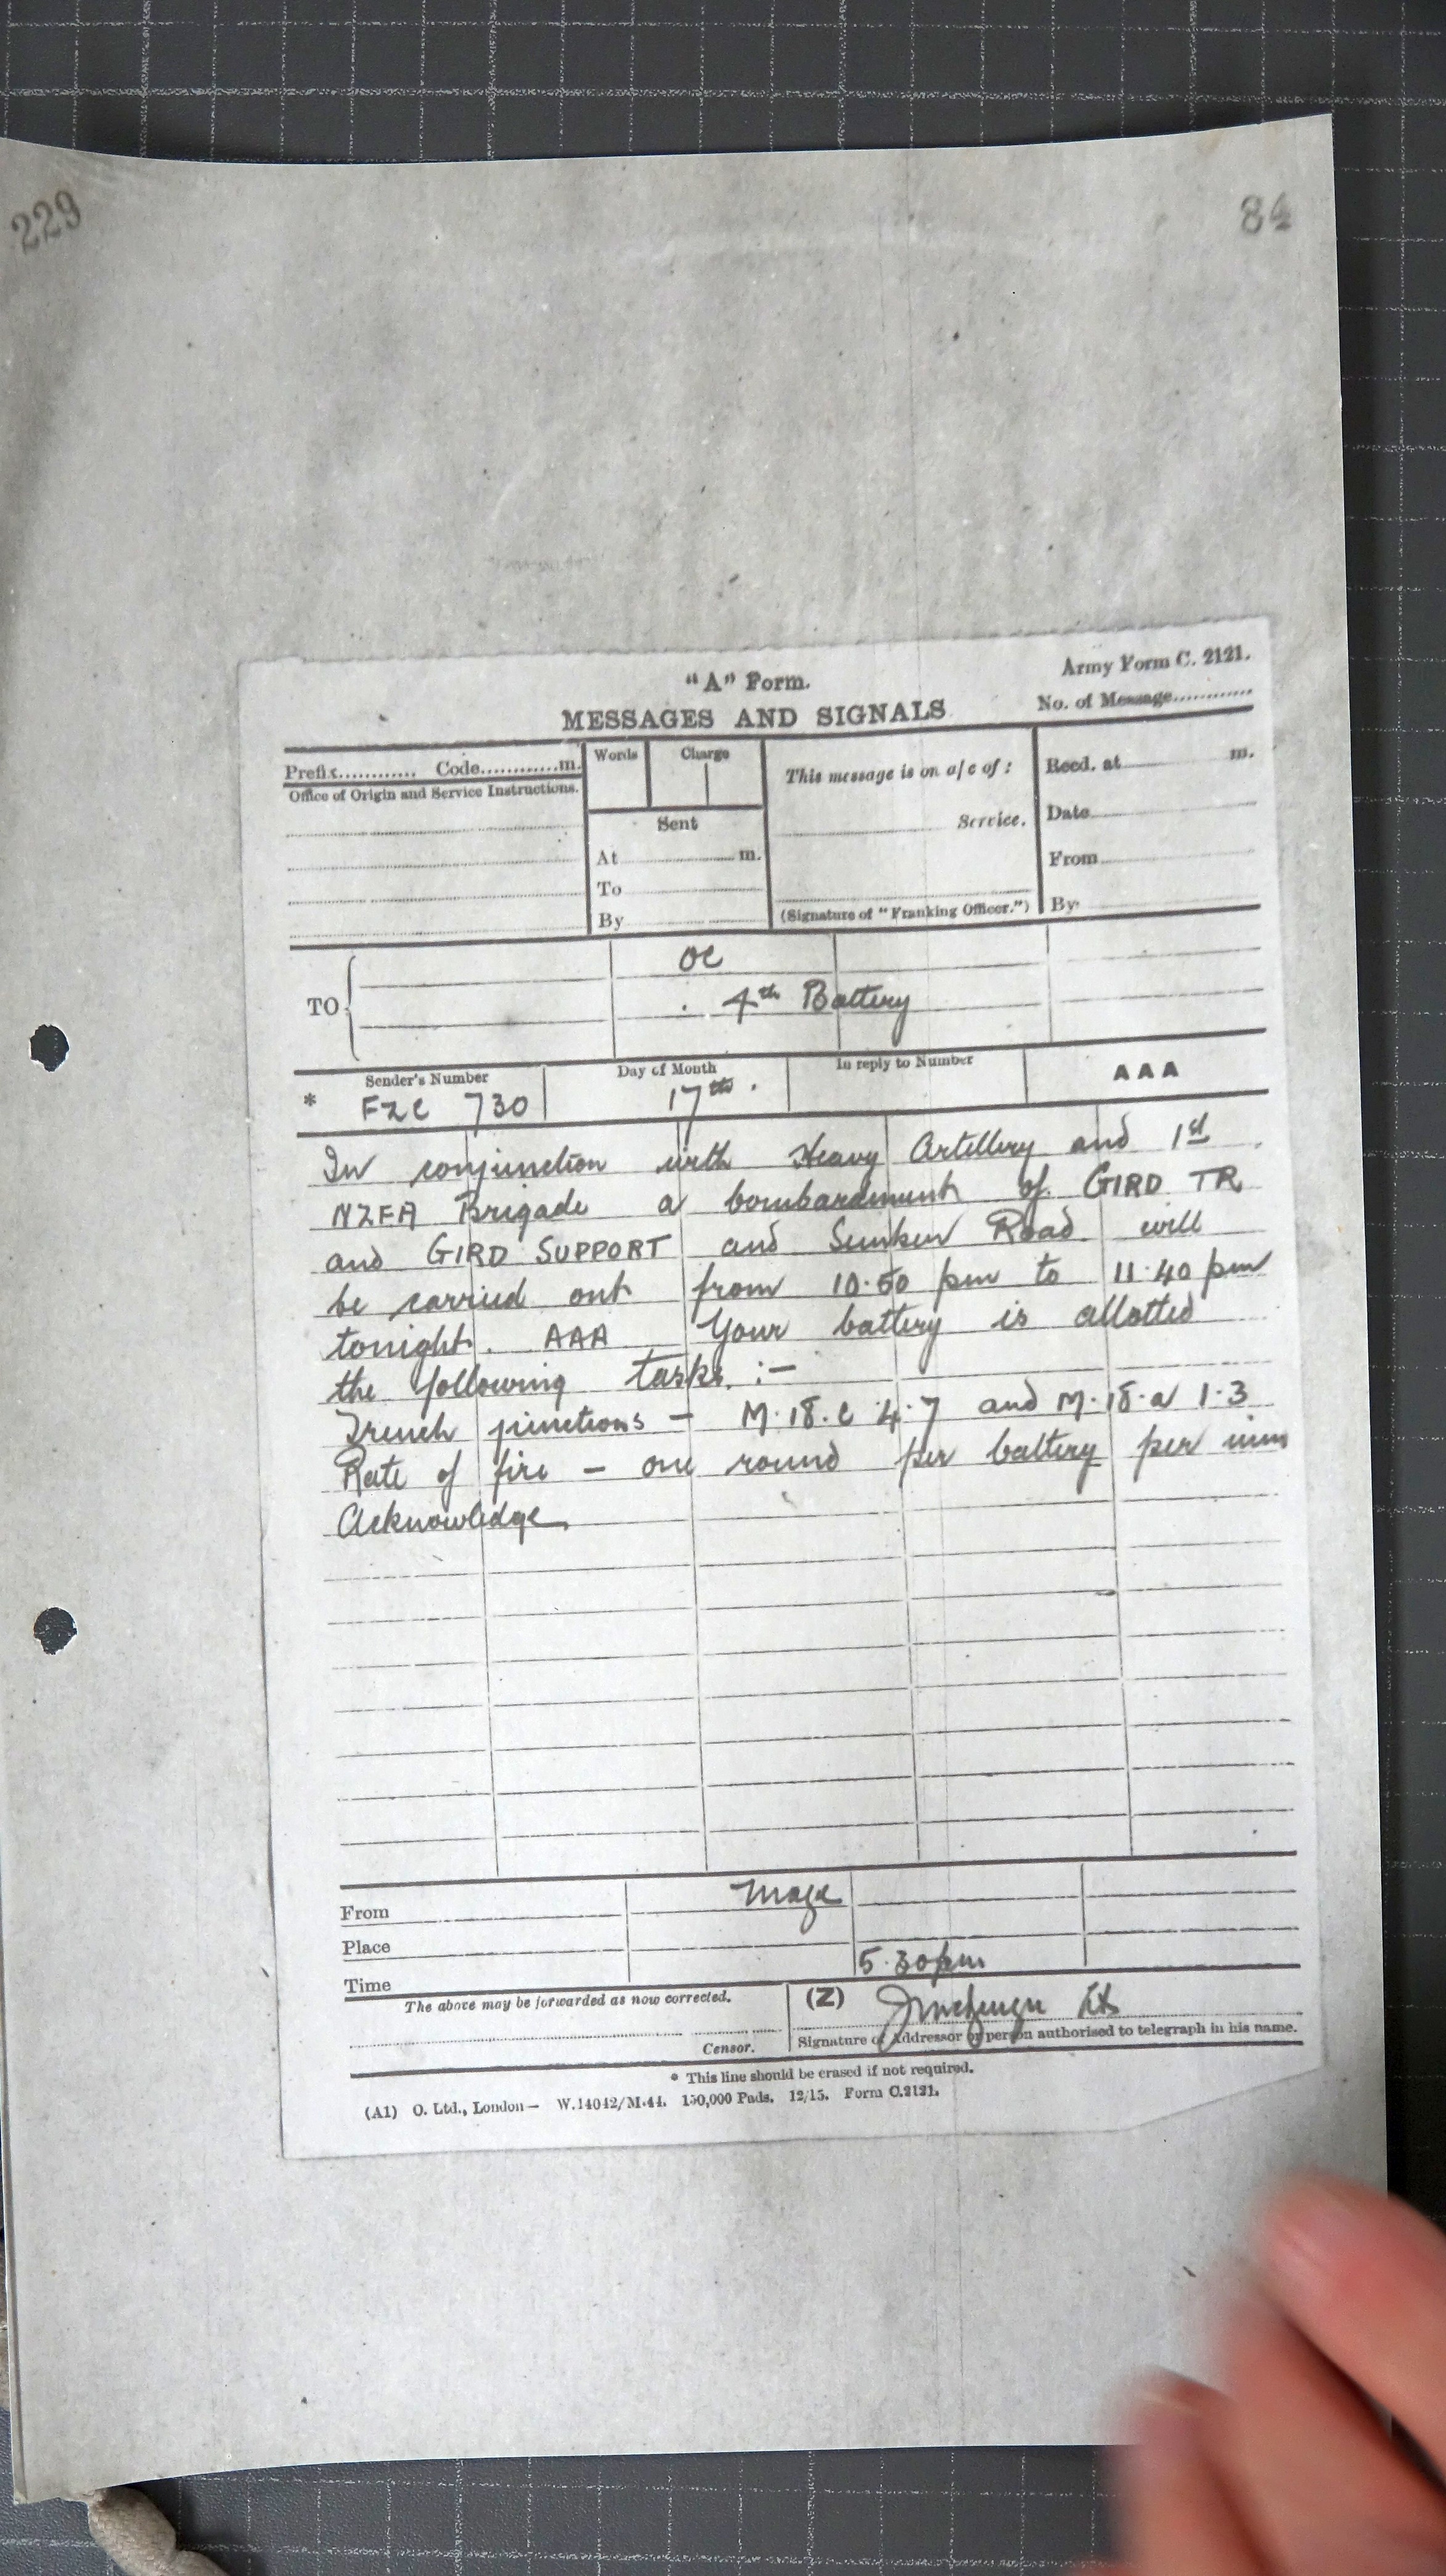 229
84
"A" Form.
Army Form C. 2121.
MESSAGES AND SIGNALS
No. of Message............
Prefix............ Code............m.
Words
Charge
This message is on a/c of :
Recd. at............m.
Office of Origin and Service Instructions.
Sent
Service.
Date............
At............m.
From............
To............
By............
(Signature of "Franking Officer.")
By............
TO
OC
4th Battery
Sender's Number
Day of Month
In reply to Number
AAA
* FZC 730
17th.
In conjunction with Heavy Artillery and 1st
NZFA Brigade a bombardment of GIRD TR
and GIRD SUPPORT and Sunken Road will
be carried out from 10.50 pm to 11.40 pm
tonight. AAA Your battery is allotted
the following tasks. :-
Trench junctions - M.18.c 4.7 and M.18.a 1.3
Rate of fire - one round per battery per min
Acknowledge
From
Maga
Place
Time
5.30pm
The above may be forwarded as now corrected.
(Z)
Lt
Censor.
Signature of Addressor or person authorised to telegraph in his name.
* This line should be erased if not required.
(A1) O. Ltd., London— W.14042/M.44. 150,000 Pads. 12/15. Form C.2121.